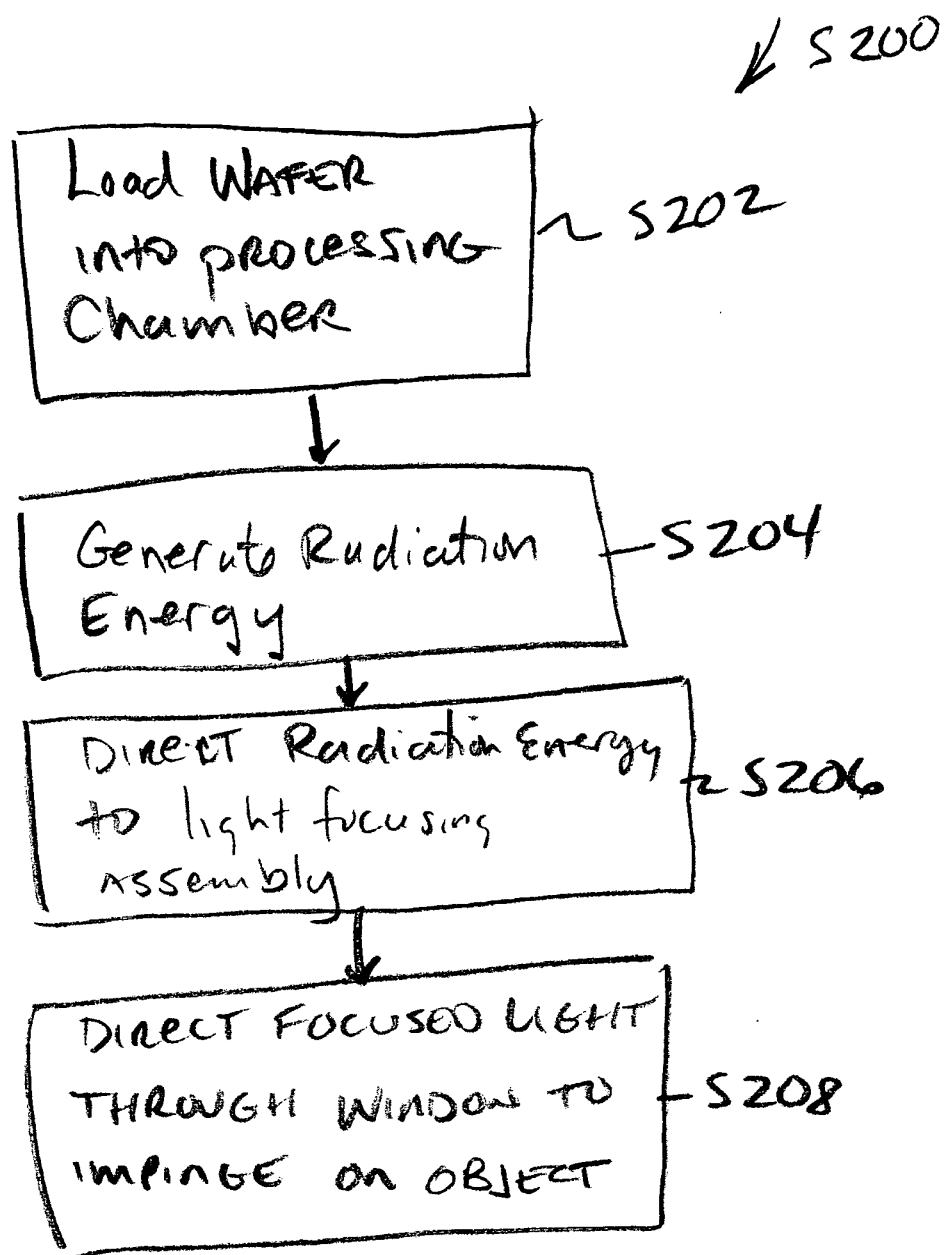 S200
Load WAFER
into processing
Chamber
S202
Generate Radiation
Energy
S204
Direct Radiation Energy
to light focusing
Assembly
S206
DIRECT FOCUSED LIGHT
THROUGH WINDOW TO
IMPINGE on OBJECT
S208